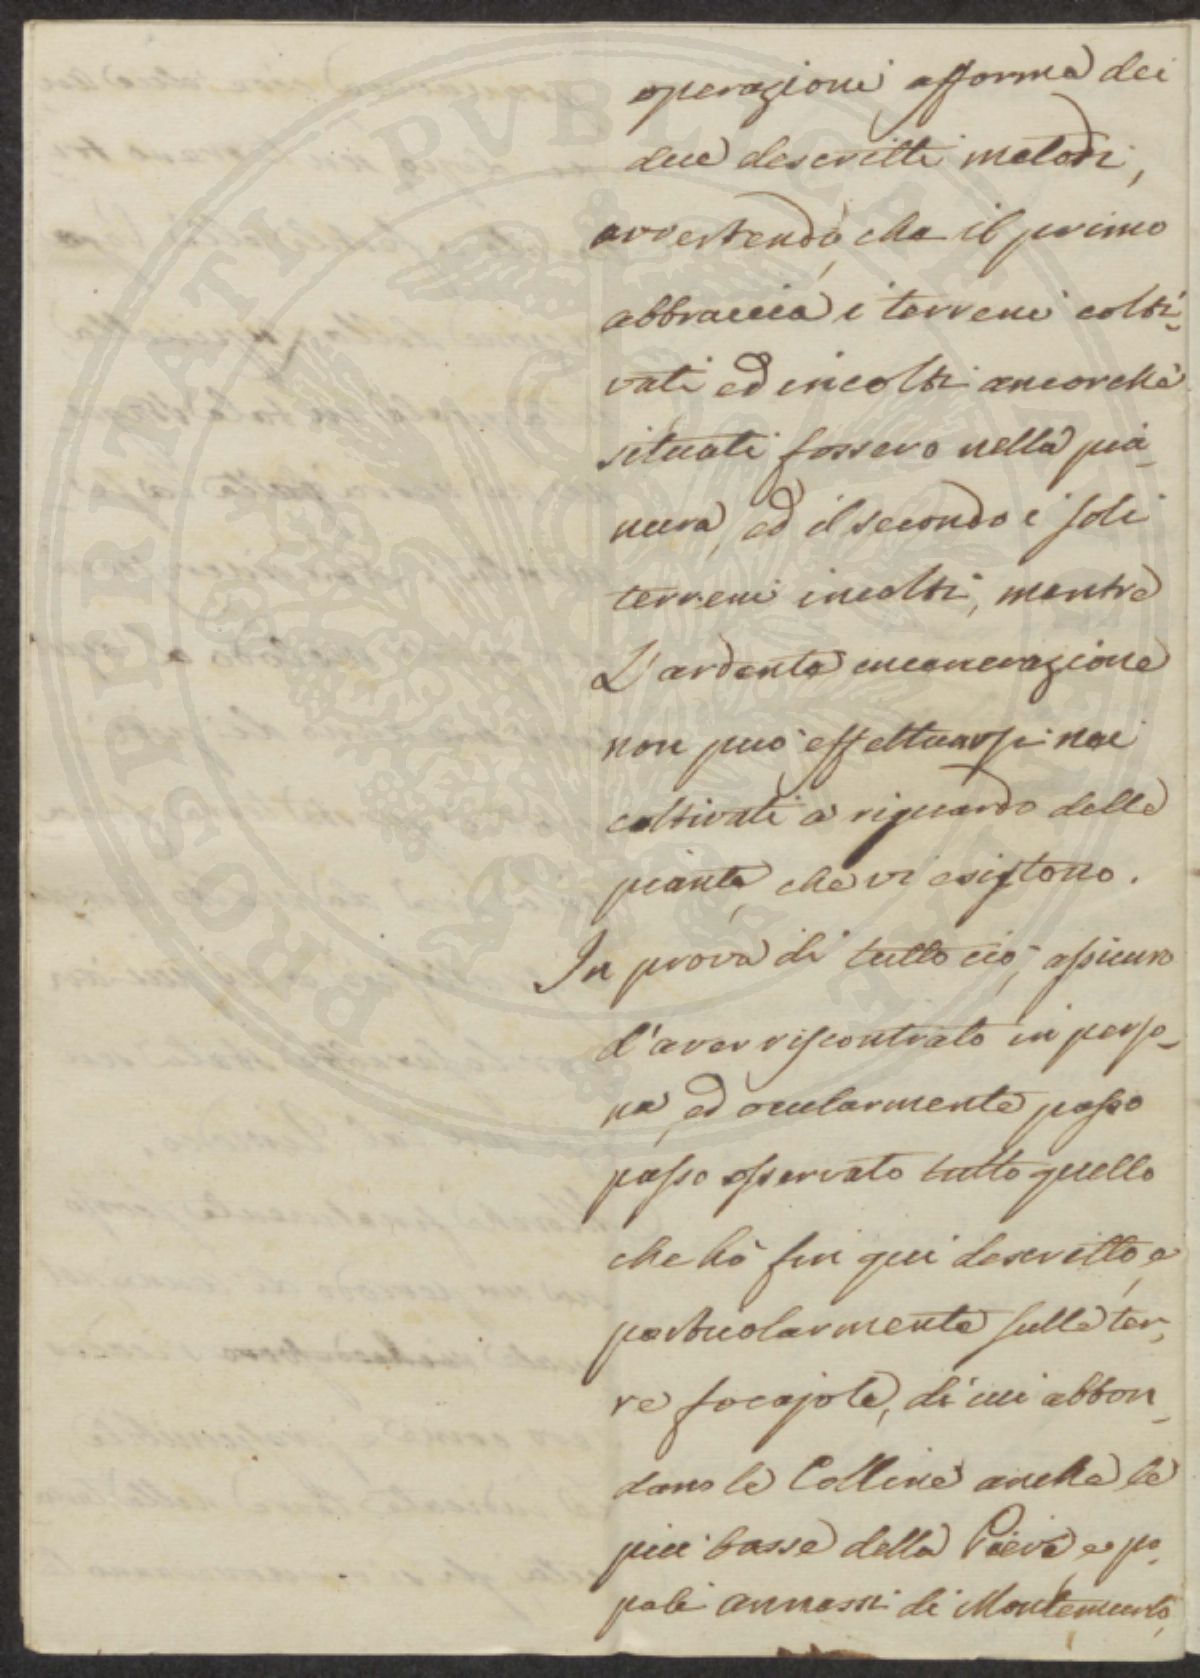 operazioni afforma dei
due descritti metodi,
avvertendo, che il primo
abbraccia i terreni colti-
vati ed incolti ancorchè
situati fossero nella pia-
nura, ed il secondo i soli
terreni incolti, mentre
L'ardente incenerazione
non può effettuarsi nei
coltivati a riguardo delle
piante, che vi esistono.
In prova di tutto ciò, assicuro
d'aver riscontrato in perso-
na, ed ocularmente passo
passo osservato tutto quello
che hò fin qui descritto, e
particolarmente sulle ter-
re focajole, di cui abbon-
dano le Colline anche le
più basse della Pieve e po-
poli annessi di Montemurlo,
PROSPERITATI PVBLICAE AVGENDAE